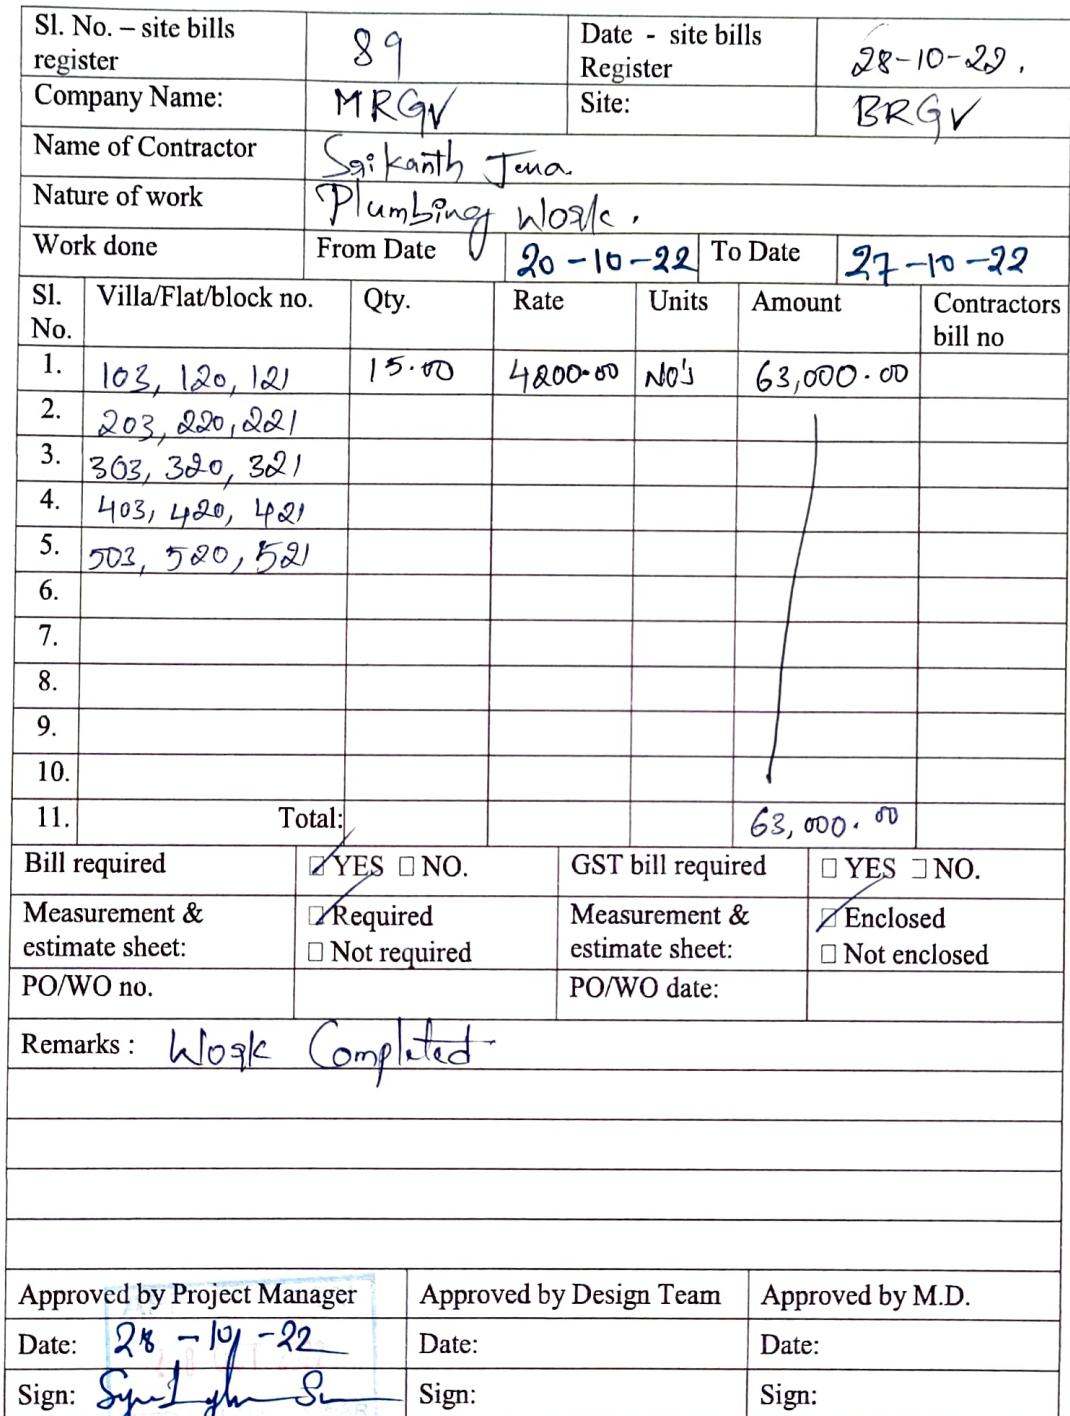 Sl. No. – site bills register 89 Date - site bills Register 28-10-22.
Company Name: MRGV Site: BRGV
Name of Contractor Srikanth Jena.
Nature of work Plumbing Work.
Work done From Date 20-10-22 To Date 27-10-22
Sl. No. Villa/Flat/block no. Qty. Rate Units Amount Contractors bill no
1. 103, 120, 121 15.00 4200.00 No's 63,000.00
2. 203, 220, 221
3. 303, 320, 321
4. 403, 420, 421
5. 503, 520, 521
6.
7.
8.
9.
10.
11. Total: 63,000.00
Bill required ☑ YES ☐ NO. GST bill required ☐ YES ☐ NO.
Measurement & estimate sheet: ☑ Required ☐ Not required Measurement & estimate sheet: ☑ Enclosed ☐ Not enclosed
PO/WO no. PO/WO date:
Remarks : Work Completed
Approved by Project Manager Approved by Design Team Approved by M.D.
Date: 28-10-22 Date: Date:
Sign: Sign: Sign: